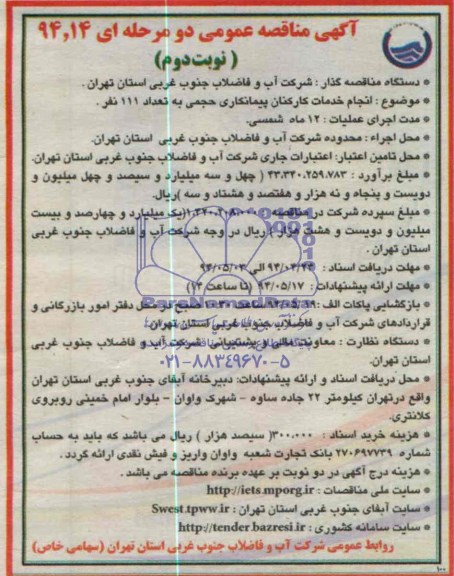 آگهی مناقصه عمومی دو مرحله ای ۹۴,۱۴
( نوبت دوم )
* دستگاه مناقصه گذار : شرکت آب و فاضلاب جنوب غربی استان تهران .
* موضوع : انجام خدمات کارکنان پیمانکاری حجمی به تعداد ۱۱۱ نفر .
* مدت اجرای عملیات : ۱۲ ماه شمسی.
* محل اجراء : محدوده شرکت آب و فاضلاب جنوب غربی استان تهران.
* محل تامین اعتبار: اعتبارات جاری شرکت آب و فاضلاب جنوب غربی استان تهران.
* مبلغ برآورد : ۴۳.۳۴۰.۲۵۹.۷۸۳ ( چهل و سه میلیارد و سیصد و چهل میلیون و
دویست و پنجاه و نه هزار و هفتصد و هشتاد و سه )ریال.
* مبلغ سپرده شرکت در مناقصه : (یک میلیارد و چهارصد و بیست
میلیون و دویست و هشت هزار ) ریال در وجه شرکت آب و فاضلاب جنوب غربی
استان تهران .
* مهلت دریافت اسناد : الی ۹۴/۰۵/۰۳
* مهلت ارائه پیشنهادات : ۹۴/۰۵/۱۷ (تا ساعت ۱۳)
* بازگشایی پاکات الف : ۹۴/۰۵/۱۹ ساعت صبح در محل دفتر امور بازرگانی و
قراردادهای شرکت آب و فاضلاب جنوب غربی استان تهران.
* دستگاه نظارت : معاونت مالی و پشتیبانی شرکت آب و فاضلاب جنوب غربی
استان تهران.
ParsNamadData
۰۲۱-۸۸۳۴۹۶۷۰-۵
* محل دریافت اسناد و ارائه پیشنهادات: دبیرخانه آبفای جنوب غربی استان تهران
واقع درتهران کیلومتر ۲۲ جاده ساوه - شهرک واوان - بلوار امام خمینی روبروی
کلانتری.
* هزینه خرید اسناد : ۳۰۰.۰۰۰( سیصد هزار ) ریال می باشد که باید به حساب
شماره ۲۷۰۶۹۷۷۳۹ بانک تجارت شعبه واوان واریز و فیش نقدی ارائه گردد .
* هزینه درج آگهی در دو نوبت بر عهده برنده مناقصه می باشد .
* سایت ملی مناقصات : http://iets.mporg.ir
* سایت آبفای جنوب غربی استان تهران : Swest.tpww.ir
* سایت سامانه کشوری : http://tender.bazresi.ir
روابط عمومی شرکت آب و فاضلاب جنوب غربی استان تهران (سهامی خاص)